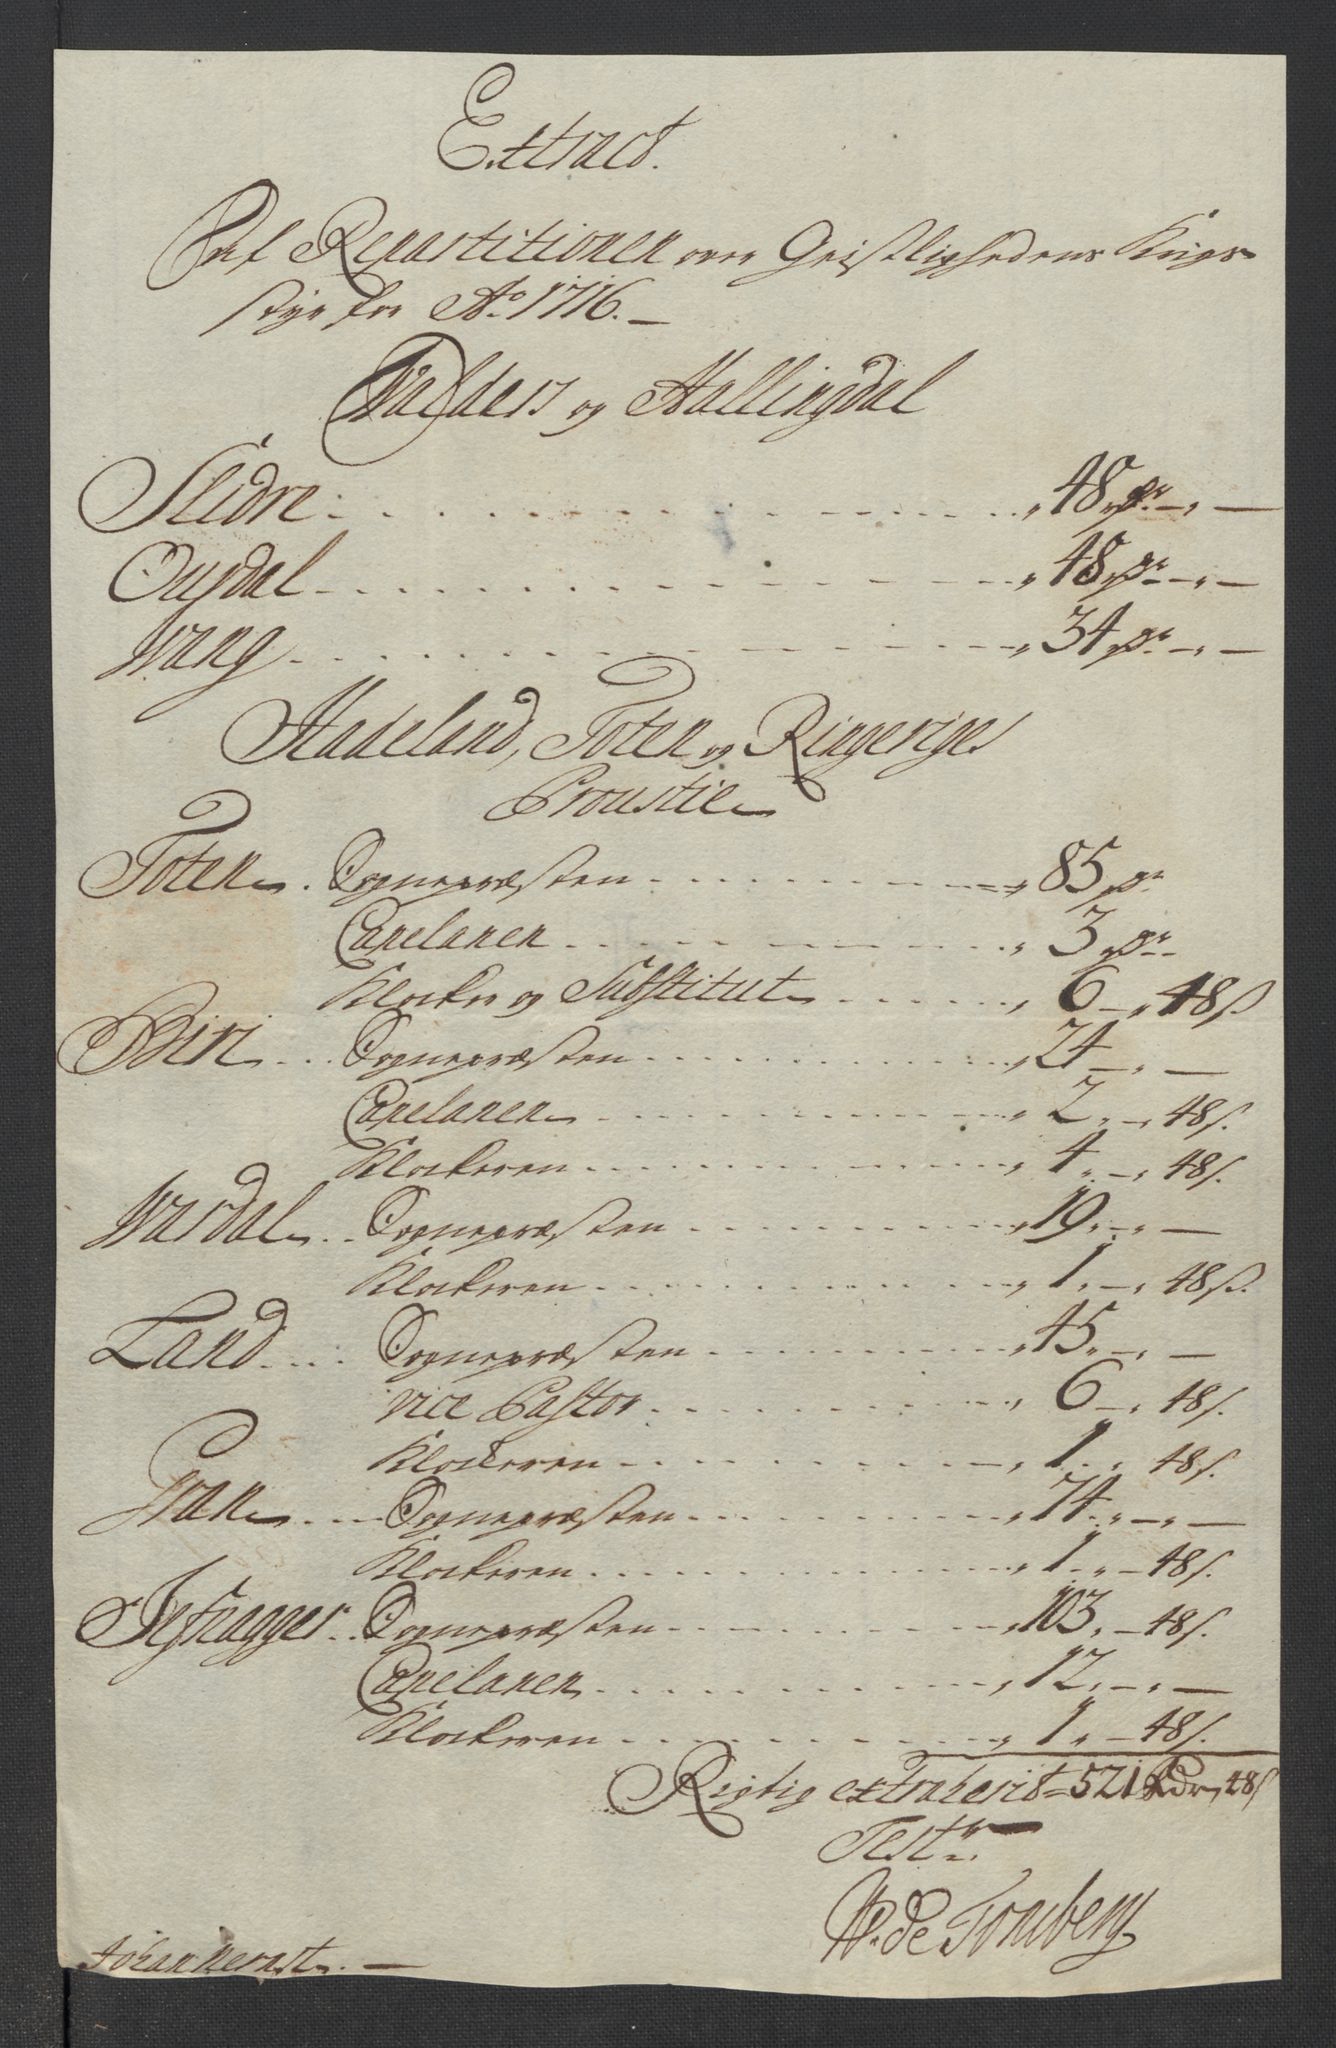 Extract.
Af Repartitionen over Geistlighedens Krigs
styr for Ao. 1716.
Walders og Hallingdal
Slidre 48 rdr
Ourdal 48 rdr
Wang 34 rdr
Hadeland, Toten og Ringeriges
Proustie
Toten. Sognepræsten 85 rdr
Capelanen 3 rdr
Klocker og Substitut 6 - 48 s
Biri Sognepræsten 24
Capelanen 2 - 48 s.
Klockeren 4 - 48 s.
Wardal Sognepræsten 19
Klockeren 1 - 48 s.
Land Sognepræsten 45
vice Pastor 6 - 48 s.
Klockeren 1 48 s.
Gran Sognepræsten 74
Klockeren 1 - 48 s.
Jefnagger Sognepræsten 103 - 48 s.
Capelanen 12
Klockeren 1 - 48 s.
Rigtig extraherit 521 Rdr 48 s
Test:
W. de Tonsberg
Johan Kernst.